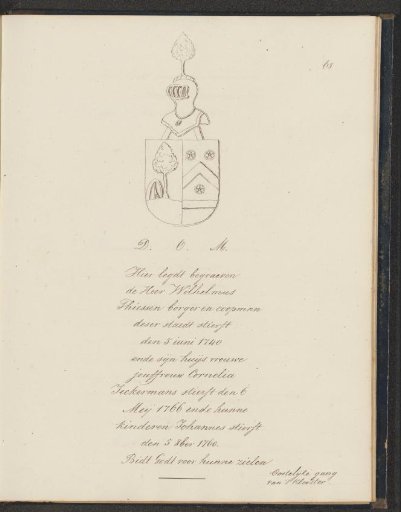 61
D. O. M.
Hier legdt begraeven
de Heer Wilhelmus
Thiessen borger en coopman
deser stadt stierft
den 5 iuni 1740
ende syn huijs vrouwe
jouffrouw Cornelia
Teckermans stierft den 6
Mey 1766 ende hunne
kinderen Johannes stierft
den 5 8ber 1760.
Bidt Godt voor hunne zielen
Oostelyke gang
van 't klooster